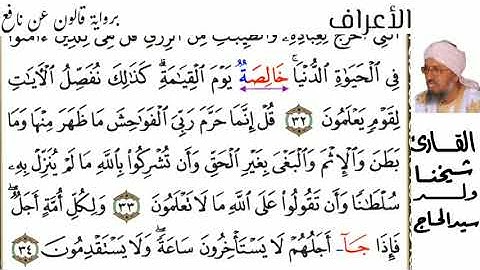 الأعراف
برواية قالون عن نافع
اَ۬لتِے أَخْرَجَ لِعِبَادِهِۦ وَالطَّيِّبَٰتِ مِنَ اَ۬لرِّزْقِ قُلْ هِيَ لِلذِينَ ءَامَنُواْ
فِي اِ۬لْحَيَوٰةِ اِ۬لدُّنْيَا خَالِصَةٌ يَوْمَ اَ۬لْقِيَٰمَةِ كَذَٰلِكَ نُفَصِّلُ اُ۬لْأٓيَٰتِ
لِقَوْمٖ يَعْلَمُونَ ٣٢ قُلْ إِنَّمَا حَرَّمَ رَبِّيَ اَ۬لْفَوَٰحِشَ مَا ظَهَرَ مِنْهَا وَمَا
بَطَنَ وَالْإِثْمَ وَالْبَغْيَ بِغَيْرِ اِ۬لْحَقِّ وَأَن تُشْرِكُواْ بِاللَّهِ مَا لَمْ يُنَزِّلْ بِهِۦ
سُلْطَٰناٗ وَأَن تَقُولُواْ عَلَى اَ۬للَّهِ مَا لَا تَعْلَمُونَ ٣٣ وَلِكُلِّ أُمَّةٍ أَجَلٞ
فَإِذَا جَا أَجَلُهُمْ لَا يَسْتَأْخِرُونَ سَاعَةٗ وَلَا يَسْتَقْدِمُونَ ٣٤
القارئ
شيخنا
ولد
سيد الحاج